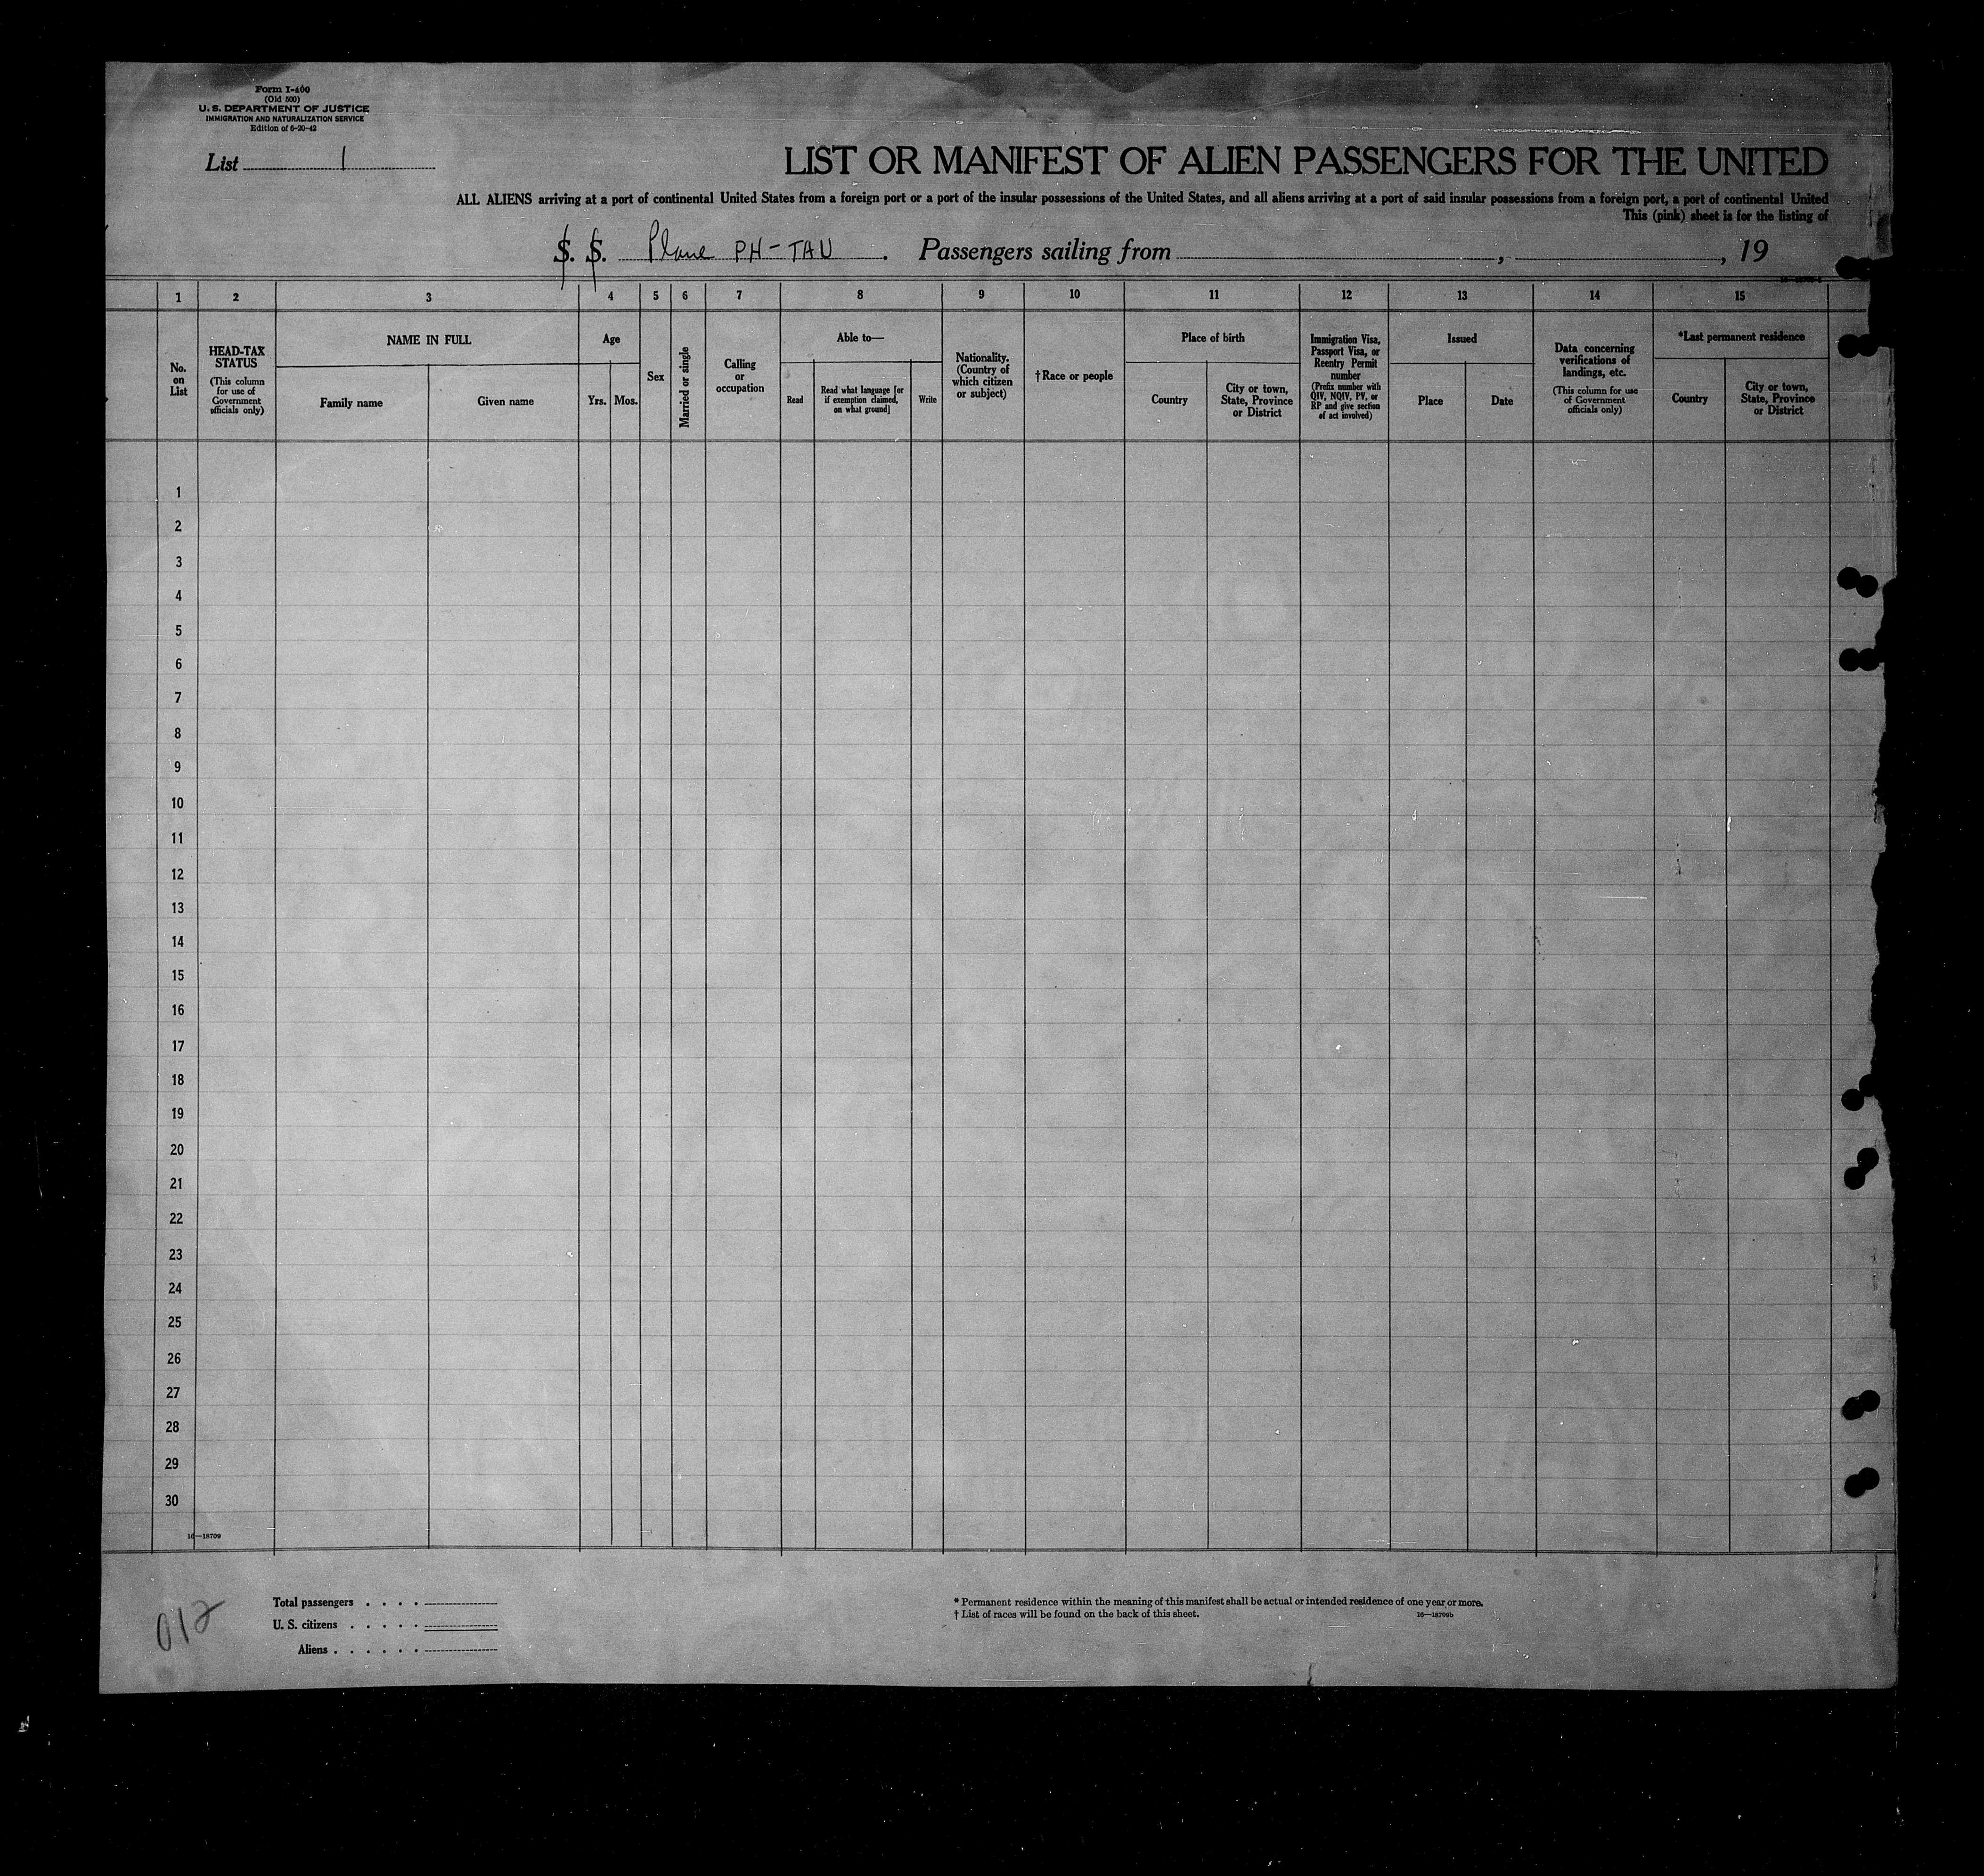 Form I-400
(Old 500)
U. S. DEPARTMENT OF JUSTICE
IMMIGRATION AND NATURALIZATION SERVICE
Edition of 6-20-42
List 1
LIST OR MANIFEST OF ALIEN PASSENGERS FOR THE UNITED
ALL ALIENS arriving at a port of continental United States from a foreign port or a port of the insular possessions of the United States, and all aliens arriving at a port of said insular possessions from a foreign port, a port of continental United
This (pink) sheet is for the listing of
S. S. Plane PH-TAU. Passengers sailing from , , 19
1 2 3 4 5 6 7 8 9 10 11 12 13 14 15
No.
on
List
HEAD-TAX
STATUS
(This column
for use of
Government
officials only)
NAME IN FULL
Family name
Given name
Age
Yrs.
Mos.
Sex
Married or single
Calling
or
occupation
Able to—
Read
Read what language [or
if exemption claimed,
on what ground]
Write
Nationality.
(Country of
which citizen
or subject)
†Race or people
Place of birth
Country
City or town,
State, Province
or District
Immigration Visa,
Passport Visa, or
Reentry Permit
number
(Prefix number with
QIV, NQIV, PV, or
RP and give section
of act involved)
Issued
Place
Date
Data concerning
verifications of
landings, etc.
(This column for use
of Government
officials only)
*Last permanent residence
Country
City or town,
State, Province
or District
1
2
3
4
5
6
7
8
9
10
11
12
13
14
15
16
17
18
19
20
21
22
23
24
25
26
27
28
29
30
16—18709
012
Total passengers . . . .
U. S. citizens . . . . .
Aliens . . . . . .
* Permanent residence within the meaning of this manifest shall be actual or intended residence of one year or more.
† List of races will be found on the back of this sheet.
16—18709b